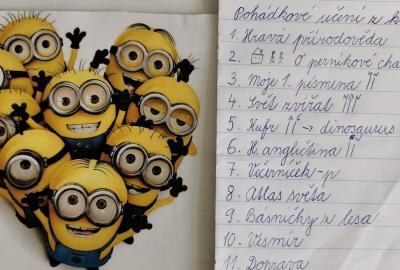 Pohádkové učení z k
1. Hravá přírodověda
2. O perníkové cha
3. Moje 1. písmena
4. Svět zvířat
5. Kufr → dinosaurus
6. H. angličtina
7. Večerníček-p.
8. Atlas světa
9. Básničky z lesa
10. Vesmír
11. Doprava